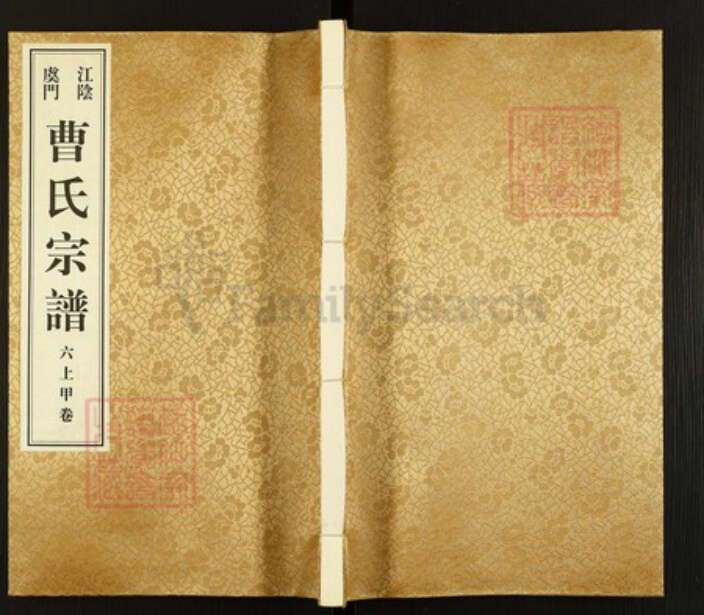 江陰
虞門
曹氏宗譜
六上甲卷
FamilySearch